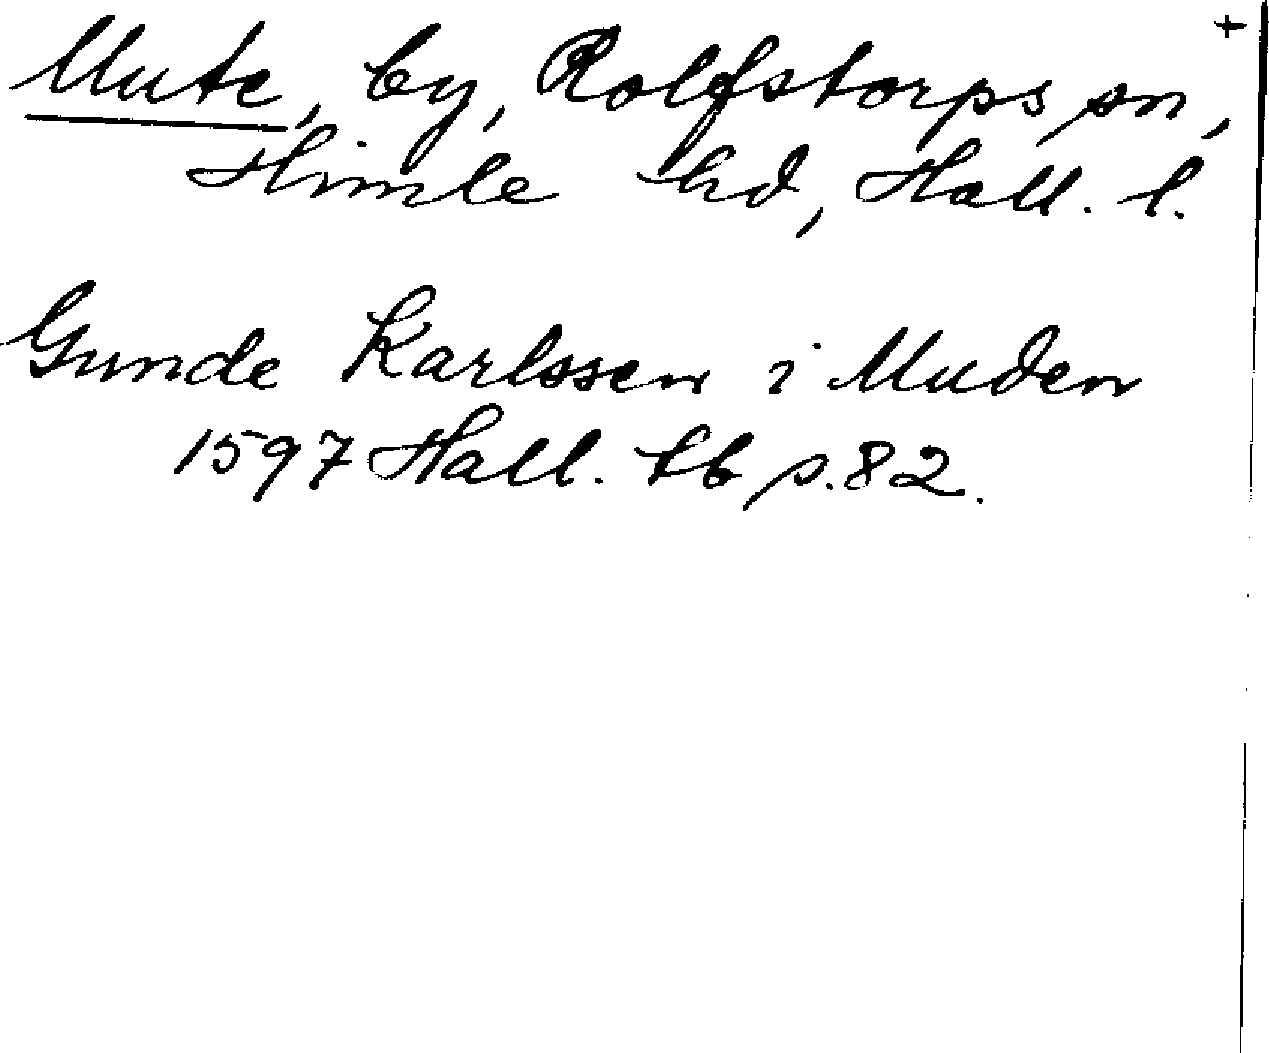 +
Mute, by, Rolfstorps sn,
Himle hd, Hall. l.
Gunde Karlssen i Muden
1597 Hall. tb p. 82.